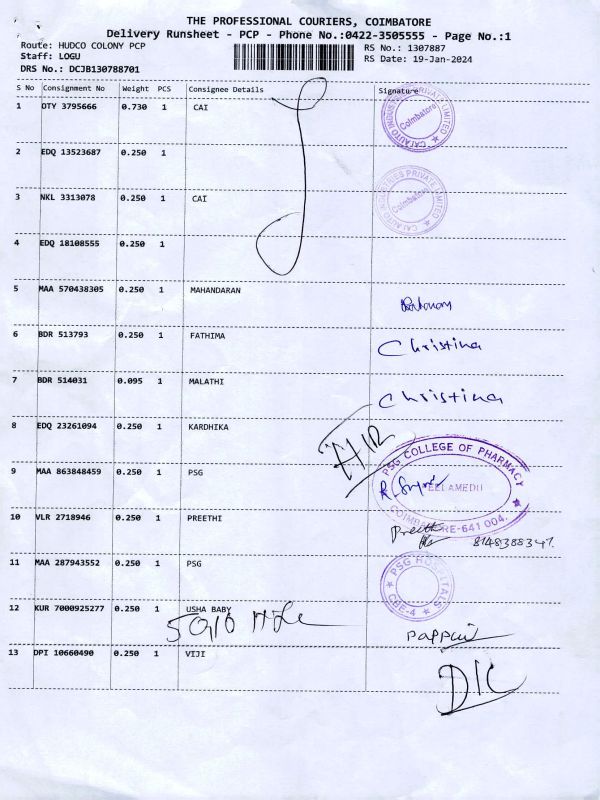 THE PROFESSIONAL COURIERS, COIMBATORE
Delivery Runsheet - PCP - Phone No.:0422-3505555 - Page No.:1
Route: HUDCO COLONY PCP RS No.: 1307887
Staff: LOGU RS Date: 19-Jan-2024
DRS No.: DCJB130788701
S No Consignment No Weight PCS Consignee Details Signature
1 OTY 3795666 0.730 1 CAI
CAI AUTO INDUSTRIES PRIVATE LIMITED Coimbatore
2 EDQ 13523687 0.250 1
3 NKL 3313078 0.250 1 CAI
CAI AUTO INDUSTRIES PRIVATE LIMITED Coimbatore
4 EDQ 18108555 0.250 1
5 MAA 570438305 0.250 1 MAHANDARAN
6 BDR 513793 0.250 1 FATHIMA Christina
7 BDR 514031 0.095 1 MALATHI Christina
8 EDQ 23261094 0.250 1 KARDHIKA
9 MAA 863848459 0.250 1 PSG
PSG COLLEGE OF PHARMACY PEELAMEDU COIMBATORE-641 004.
10 VLR 2718946 0.250 1 PREETHI Preethi
11 MAA 287943552 0.250 1 PSG
PSG HOSPITALS CBE-4
12 KUR 7000925277 0.250 1 USHA BABY
13 DPI 10660490 0.250 1 VIJI